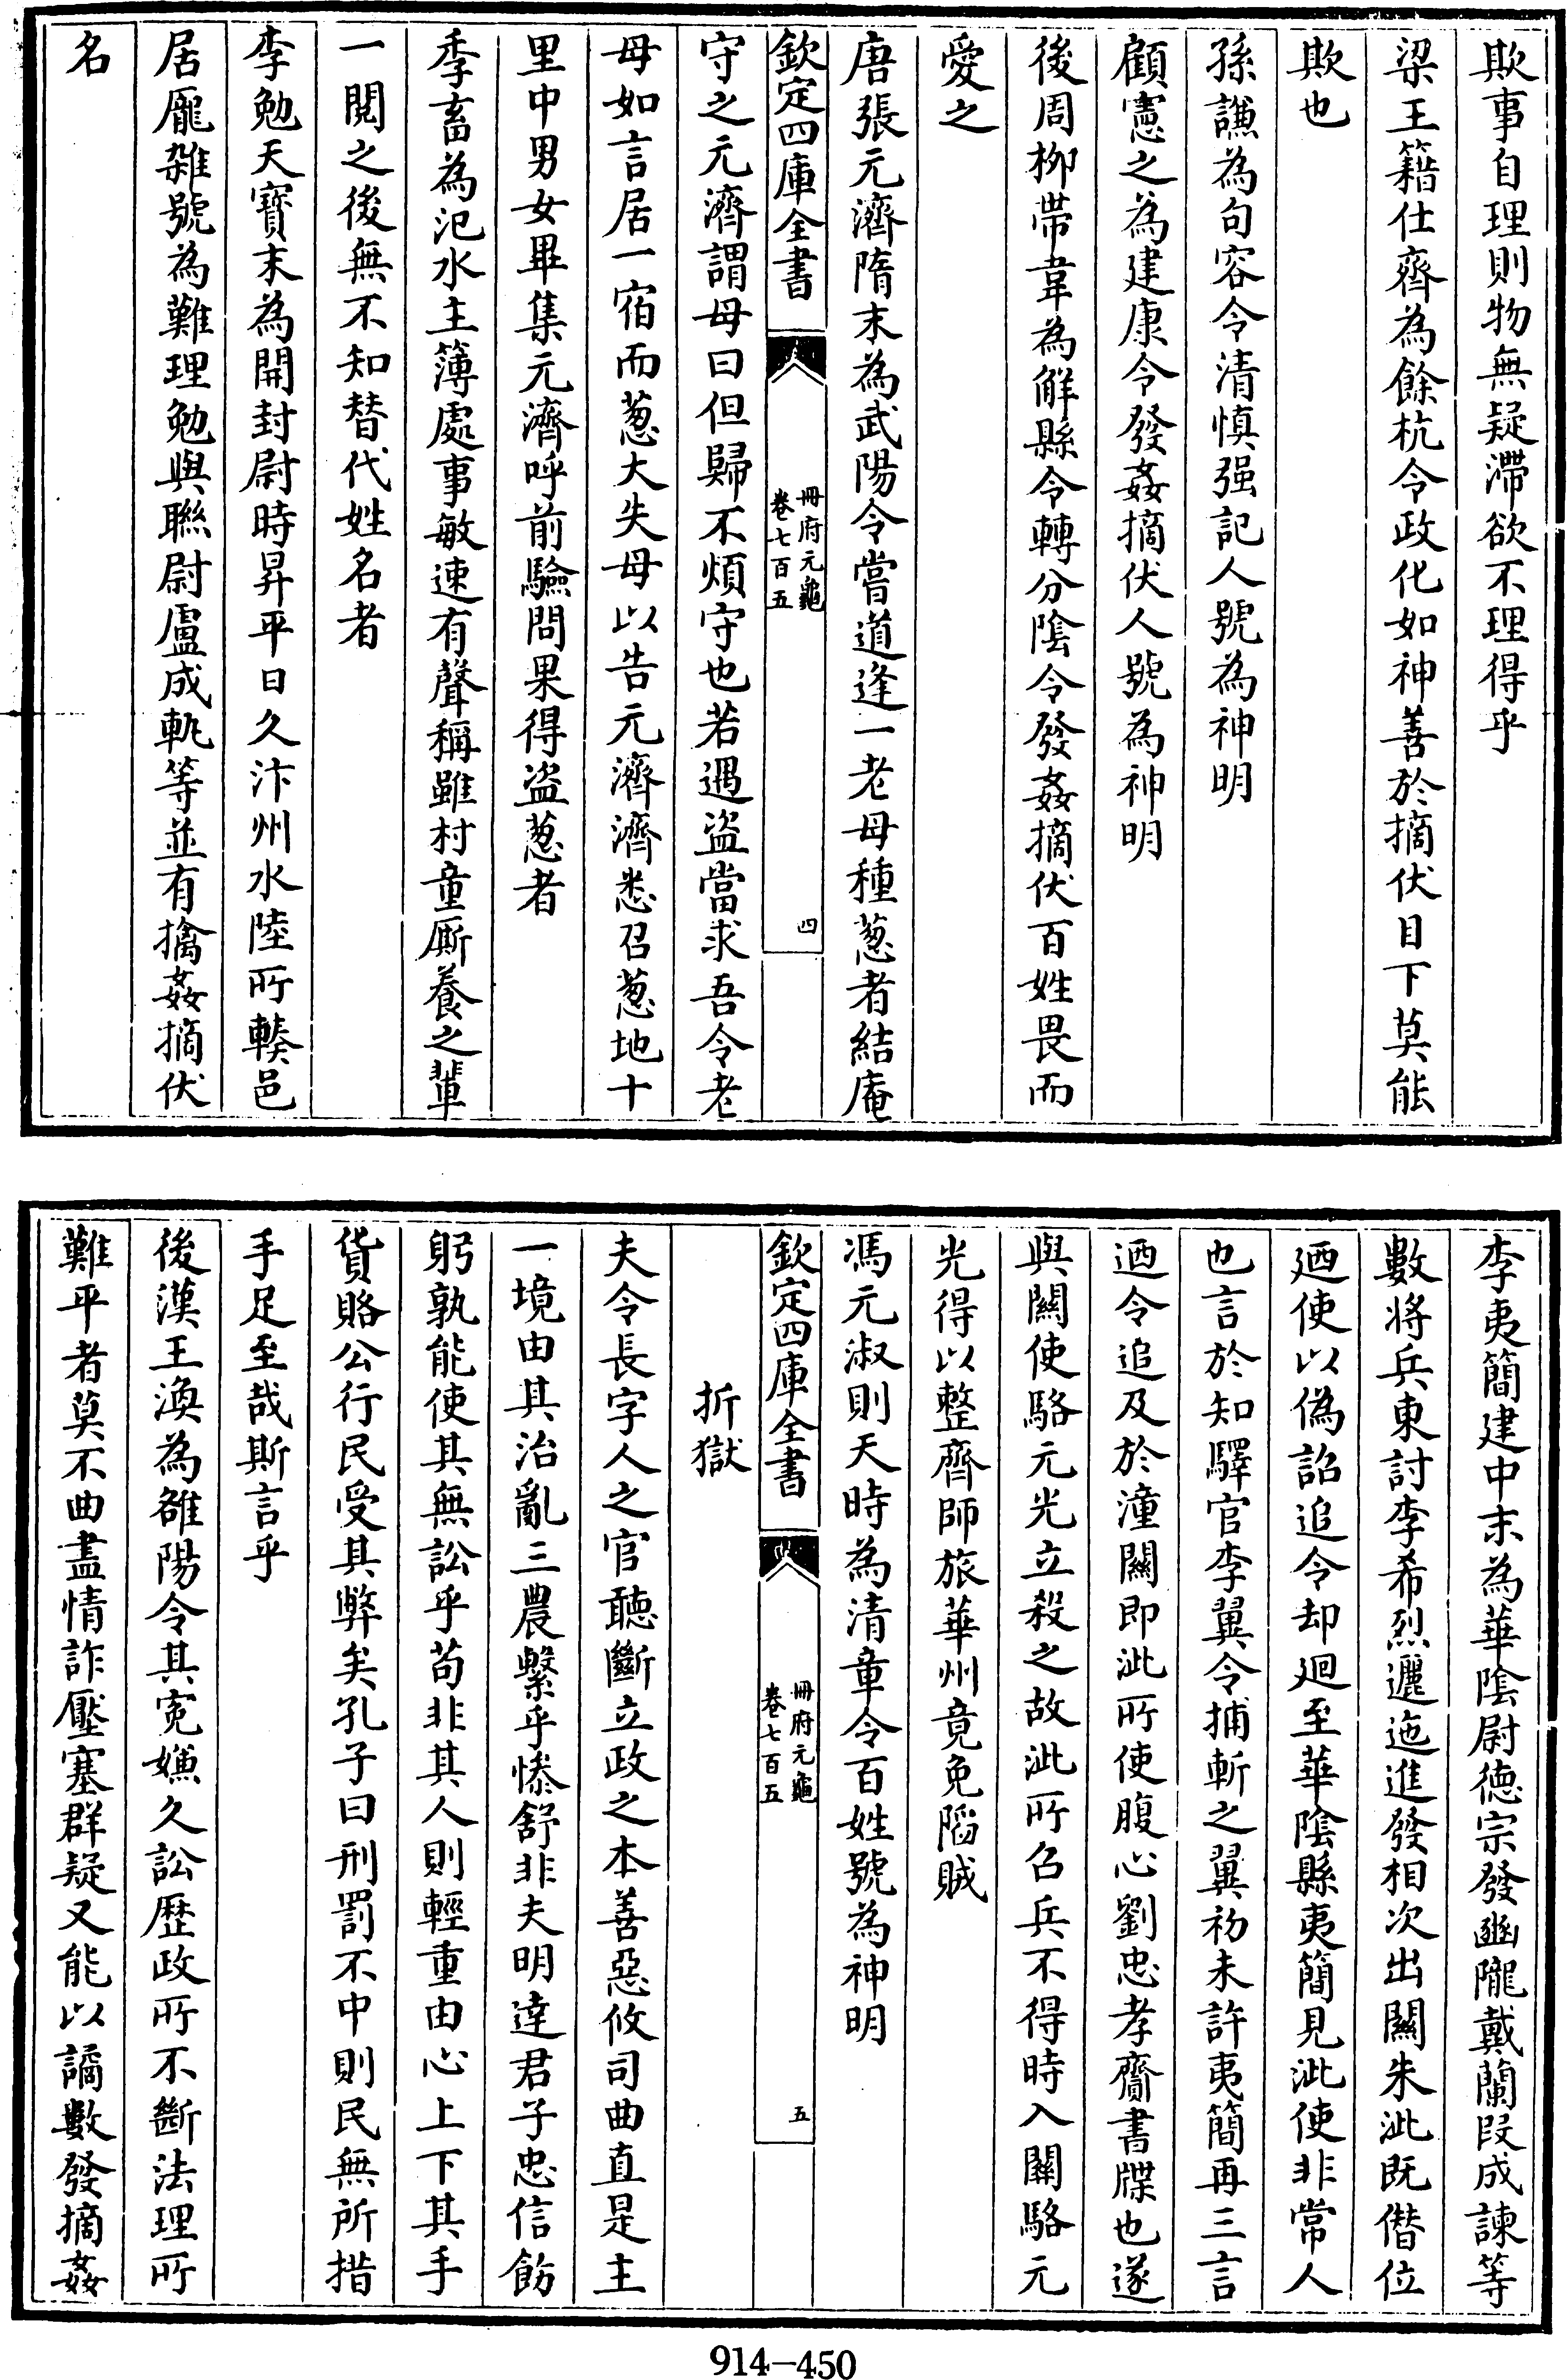 欺事自理則物無疑滯欲不理得乎
梁王籍仕齊為餘杭令政化如神善於摘伏目下莫能
欺也
孫謙為句容令清慎强記人號為神明
顧憲之為建康令發姦摘伏人號為神明
後周柳帶韋為解縣令轉分陰令發姦摘伏百姓畏而
愛之
唐張元濟隋末為武陽令嘗道逢一老母種葱者結庵
欽定四庫全書
冊府元龜
卷七百五
四
守之元濟謂母曰但歸不煩守也若遇盜當求吾令老
母如言居一宿而葱大失母以告元濟濟悉召葱地十
里中男女畢集元濟呼前驗問果得盜葱者
季畜為汜水主簿處事敏速有聲稱雖村童厮養之輩
一閱之後無不知替代姓名者
李勉天寶末為開封尉時昇平日久汴州水陸所輳邑
居龐雜號為難理勉與聯尉盧成軌等並有擒姦摘伏
名
李夷簡建中末為華陰尉德宗發幽隴戴蘭段成諫等
數將兵東討李希烈邐迤進發相次出關朱泚既僭位
廼使以偽詔追令却迴至華陰縣夷簡見泚使非常人
也言於知驛官李翼令捕斬之翼初未許夷簡再三言
迺令追及於潼關即泚所使腹心劉忠孝齎書牒也遂
與關使駱元光立殺之故泚所召兵不得時入關駱元
光得以整齊師旅華州竟免陷賊
馮元淑則天時為清章令百姓號為神明
欽定四庫全書
冊府元龜
卷七百五
五
折獄
夫令長字人之官聽斷立政之本善惡攸司曲直是主
一境由其治亂三農繫乎慘舒非夫明達君子忠信飭
躬孰能使其無訟乎苟非其人則輕重由心上下其手
貨賂公行民受其弊矣孔子曰刑罰不中則民無所措
手足至哉斯言乎
後漢王渙為雒陽令其寃嫌久訟歷政所不斷法理所
難平者莫不曲盡情詐壓塞群疑又能以譎數發摘姦
914-450